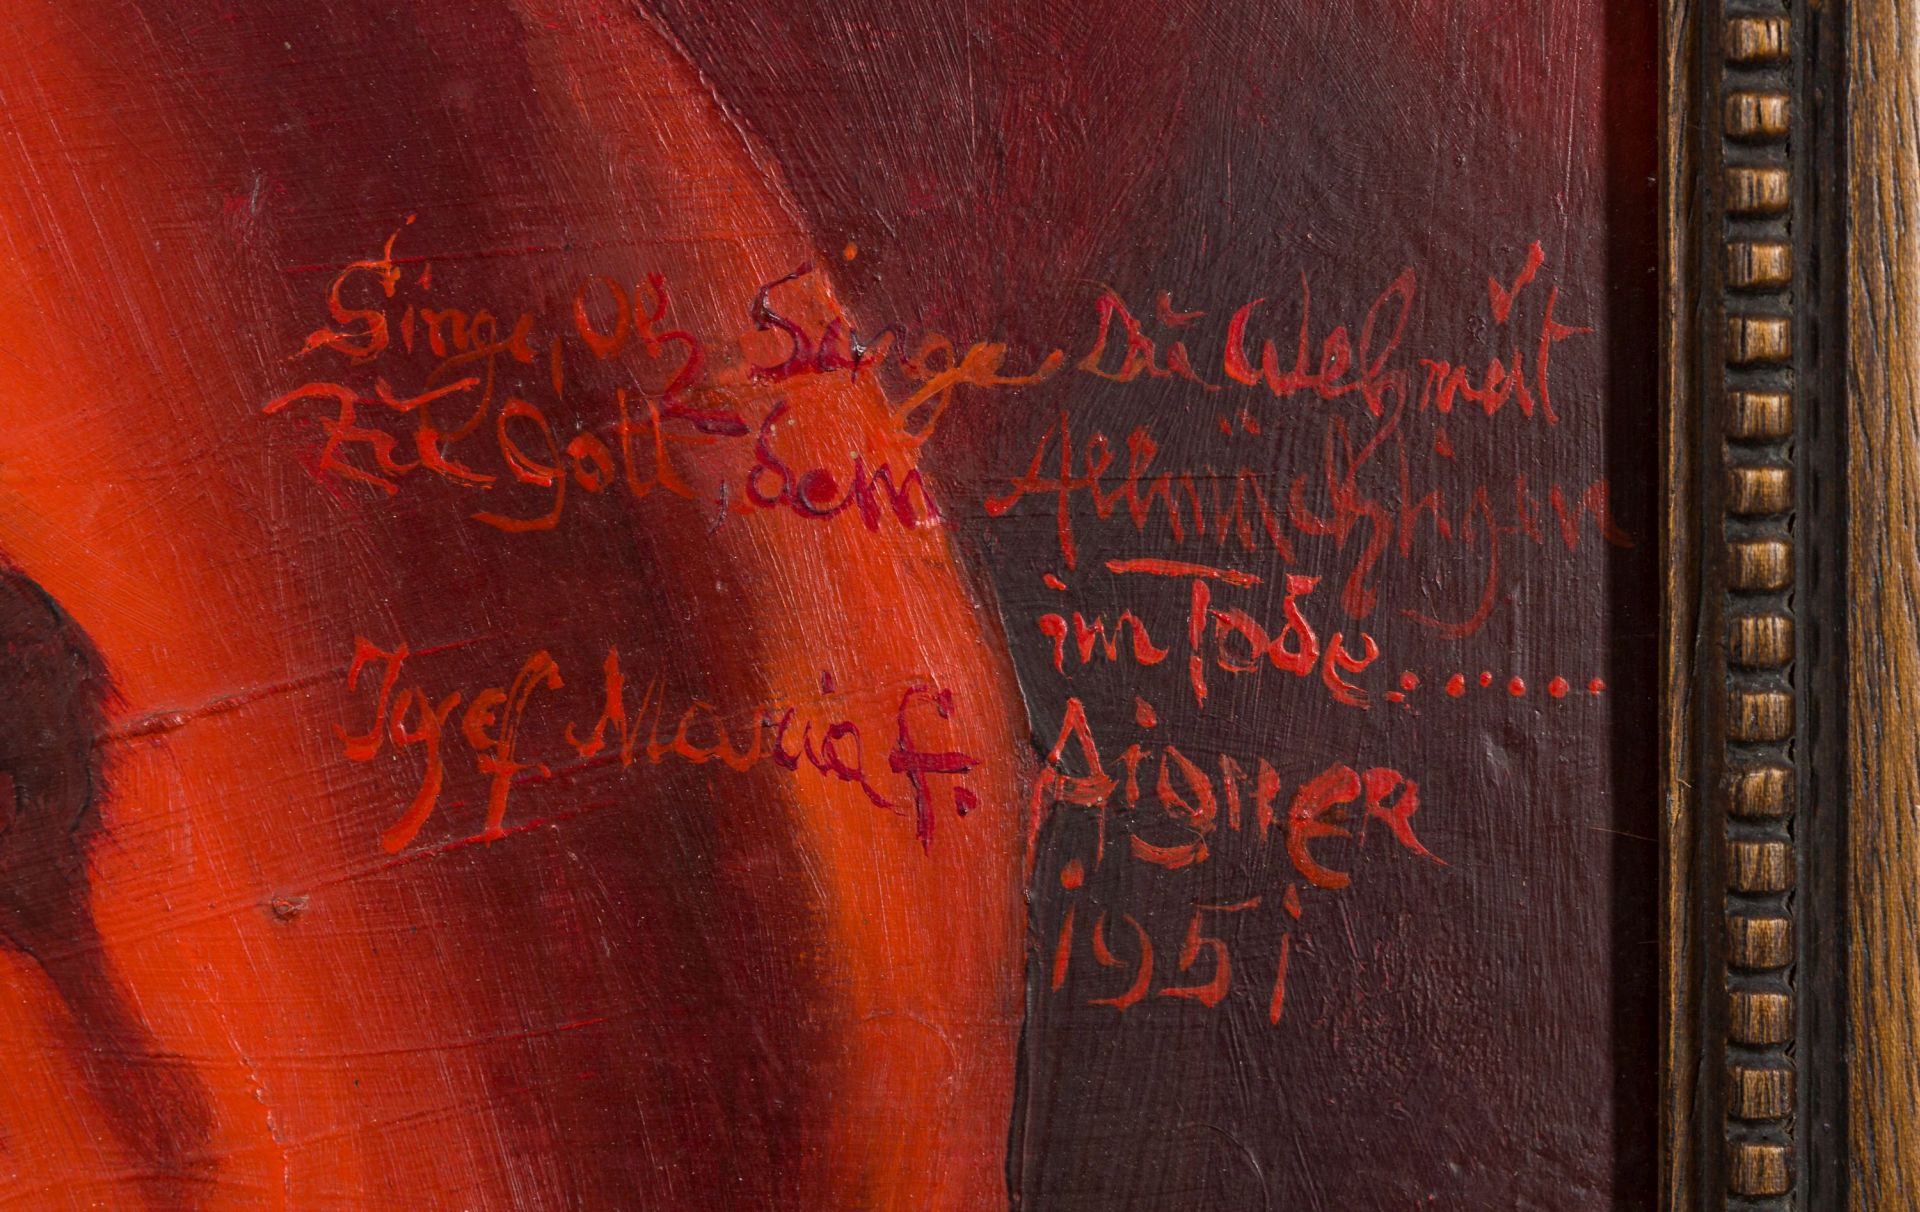 Singe, Oh Singe Du Wehmut
Zu Gott, dem Allmächtigen
im Tode......
Josef Maria f. Aigner
1951